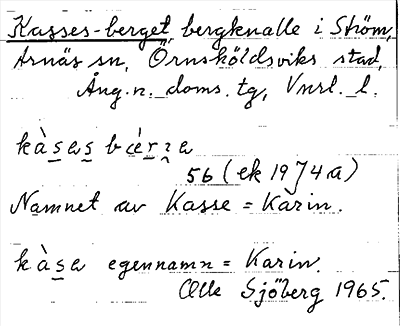 Kasses-berget, bergknalle i Ström,
Arnäs sn, Örnsköldsviks stad,
Ång.n. doms. tg, Vnrl. l.
kàsas bærʒa
56 (ek 1974a)
Namnet av Kasse = Karin.
kàsa egennamn = Karin.
Olle Sjöberg 1965.